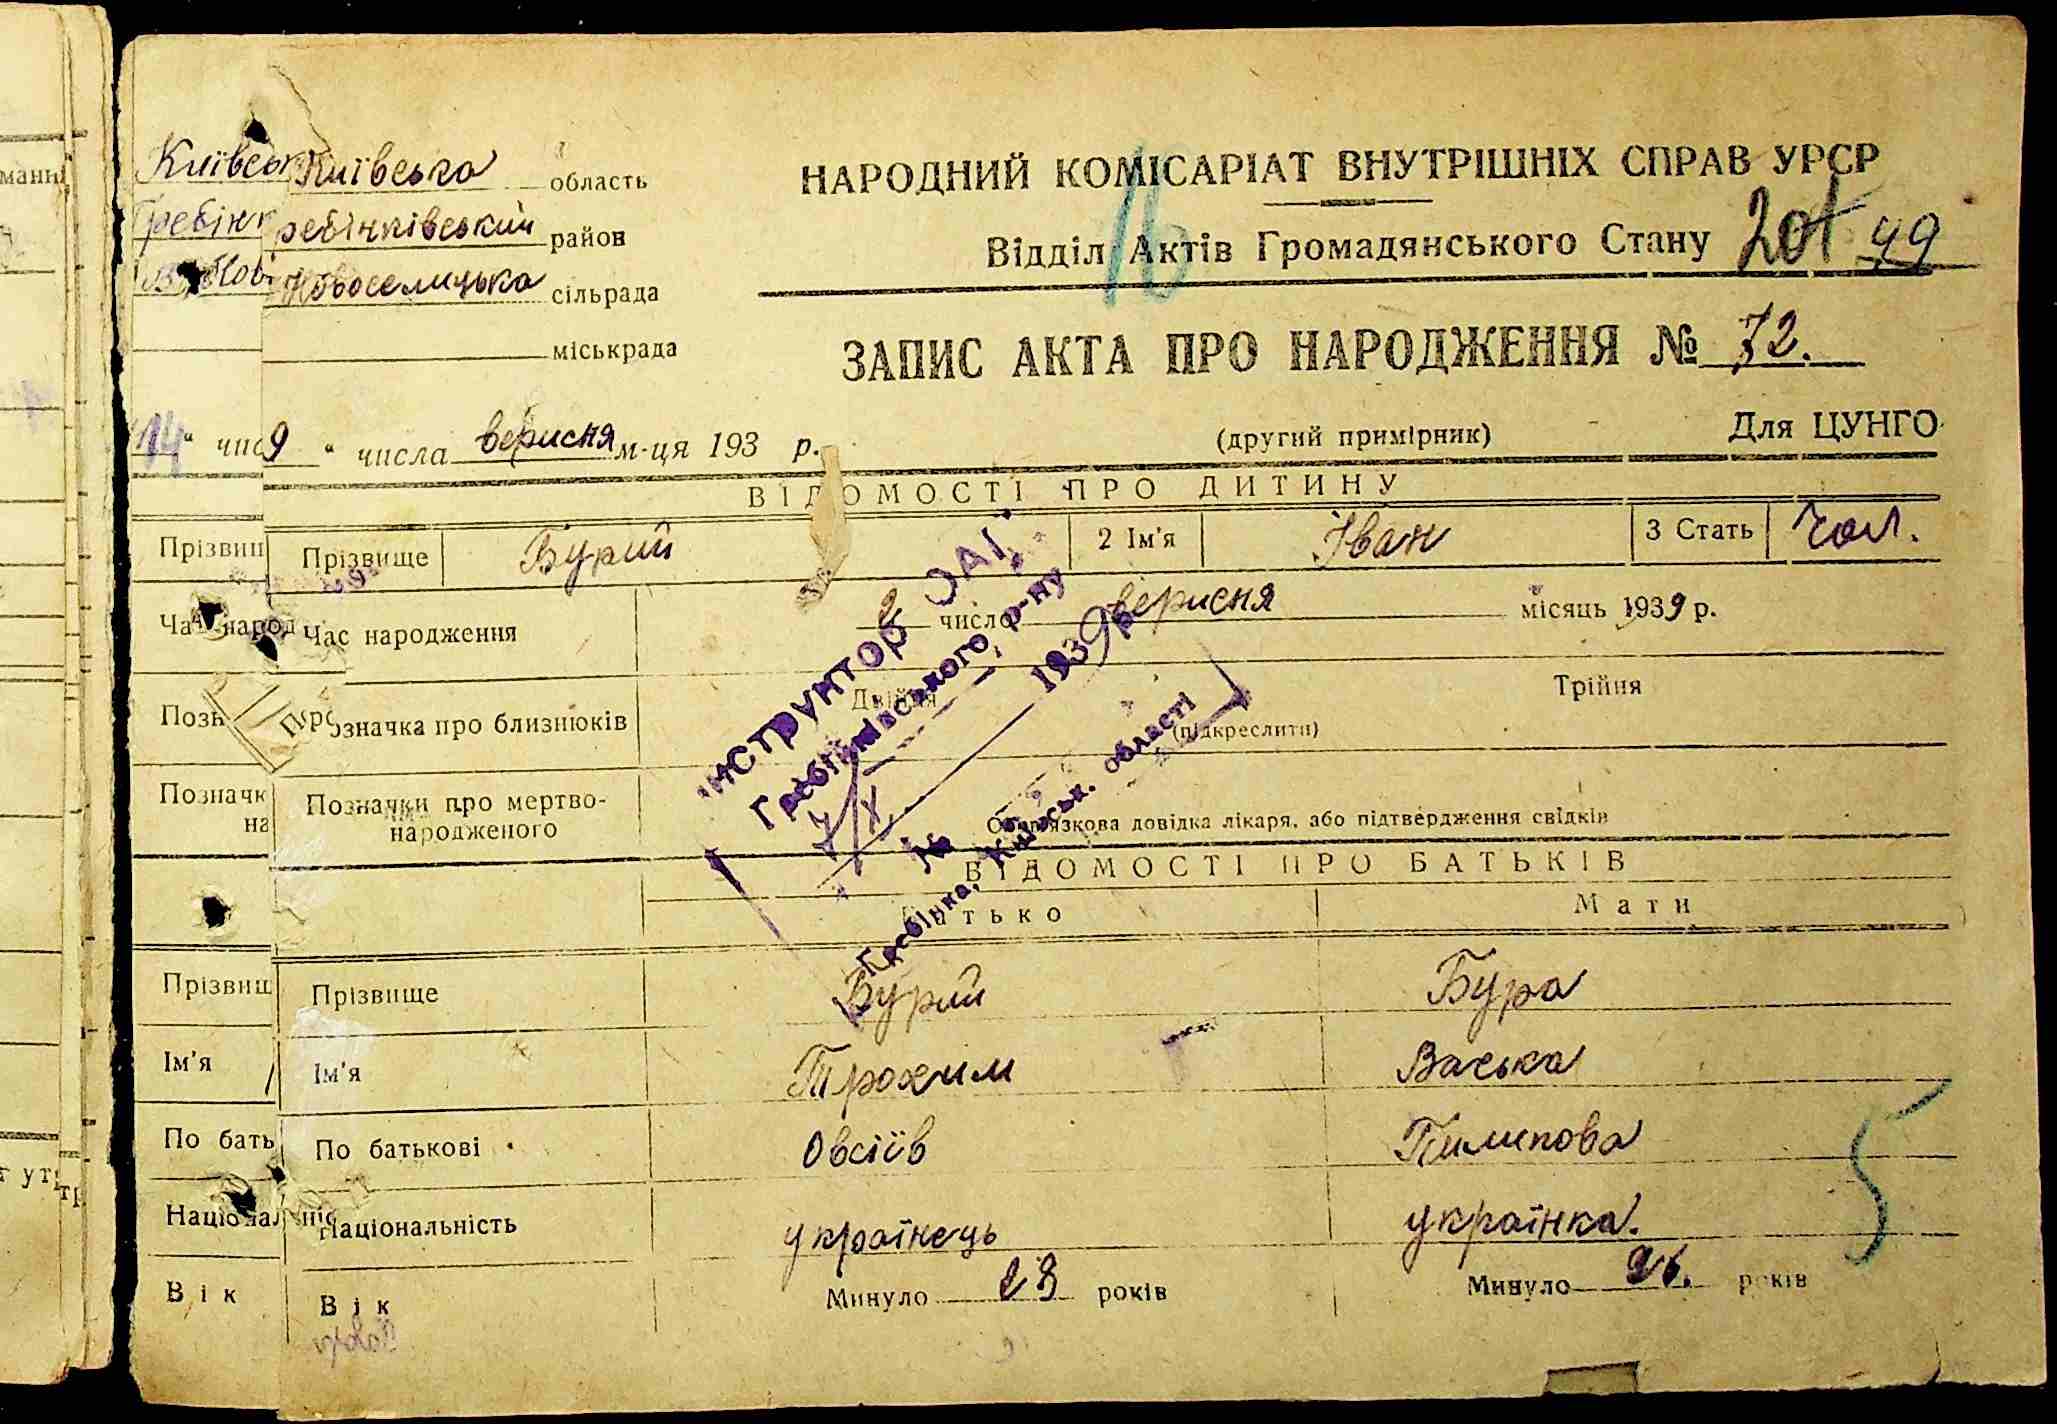 Київська область
НАРОДНИЙ КОМІСАРІАТ ВНУТРІШНІХ СПРАВ УРСР
Гребінківський район
Відділ Актів Громадянського Стану 201 49
16
Новоселицька сільрада
міськрада
ЗАПИС АКТА ПРО НАРОДЖЕННЯ № 72.
9 " числа вересня м-ця 193 р.
(другий примірник)
Для ЦУНГО
ВІДОМОСТІ ПРО ДИТИНУ
Прізвище Бурий 2 Ім'я Іван 3 Стать Чол.
Час народження 2 число вересня місяць 1939 р.
Позначка про близнюків Двійня Трійня
(підкреслити)
Позначки про мертво-
народженого
Обов'язкова довідка лікаря, або підтвердження свідків
ІНСТРУКТОР ЗАГ
Гребінківського р-ну
1939 р.
№
Гребінка, Київськ. області
ВІДОМОСТІ ПРО БАТЬКІВ
Батько Мати
Прізвище Бурий Бура
Ім'я Трохим Васька
По батькові Овсіїв Пилипова
Національність українець українка.
5
Вік Минуло 23 років Минуло 26. років
Київськ
Гребінк
14 " чис
Прізвищ
Час народ
Позн
Позначк
на
Прізвищ
Ім'я
По бать
Національніс
Вік